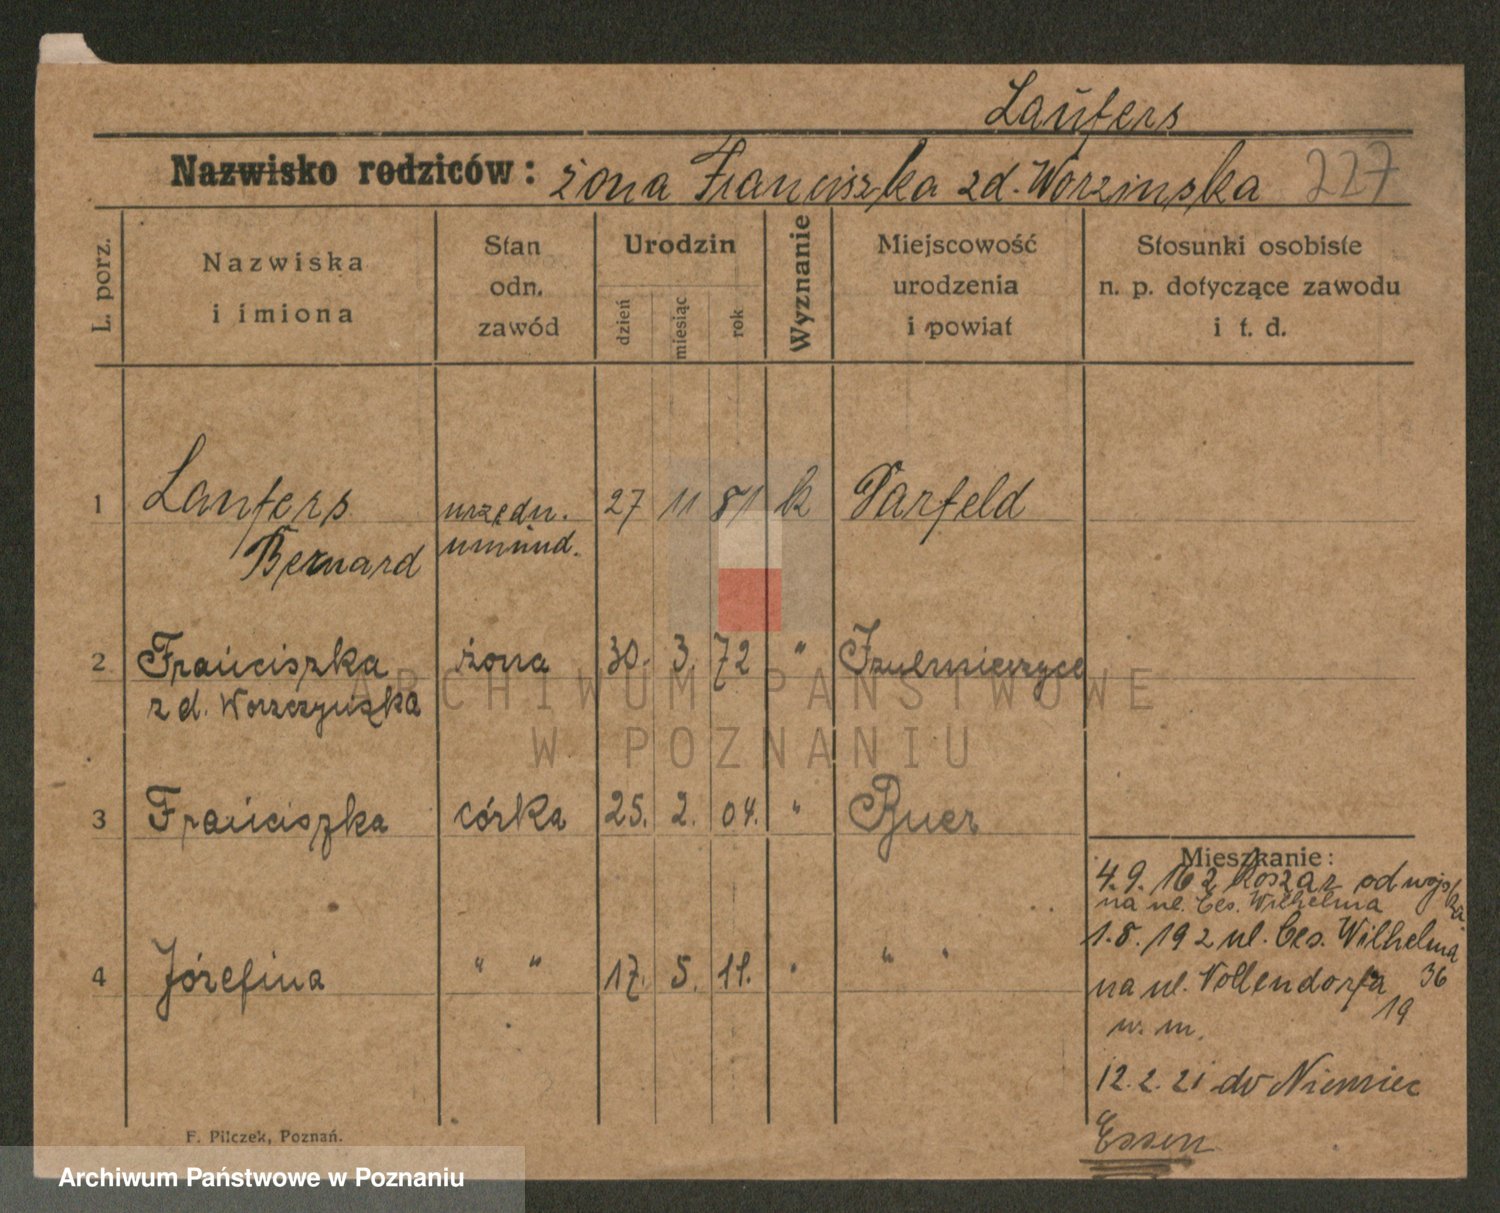 Laufers
Nazwisko rodziców: żona Franciszka zd. Worzinska 227
L. porz.
Nazwiska
i imiona
Stan
odn.
zawód
Urodzin
dzień
miesiąc
rok
Wyznanie
Miejscowość
urodzenia
i powiat
Stosunki osobiste
n. p. dotyczące zawodu
i t. d.
1 Laufers urzędn. 27 11 81 k Parfeld
Bernard umund.
2 Franciszka żona 30. 3. 72 "
zd. Worszczyńska
3 Franciszka córka 25. 2. 04. " Buer
4 Józefina " " 17. 5. 11. " " "
Mieszkanie:
4.9.16 z Koszar od wojska
na ul. Ces. Wilhelma
1.8.19 z ul. Ces. Wilhelma
36
na ul. Nollendorfa
19
w. m.
12.2.21 do Niemiec
Essen
F. Pilczek, Poznań.
ARCHIWUM PAŃSTWOWE
W POZNANIU
Archiwum Państwowe w Poznaniu